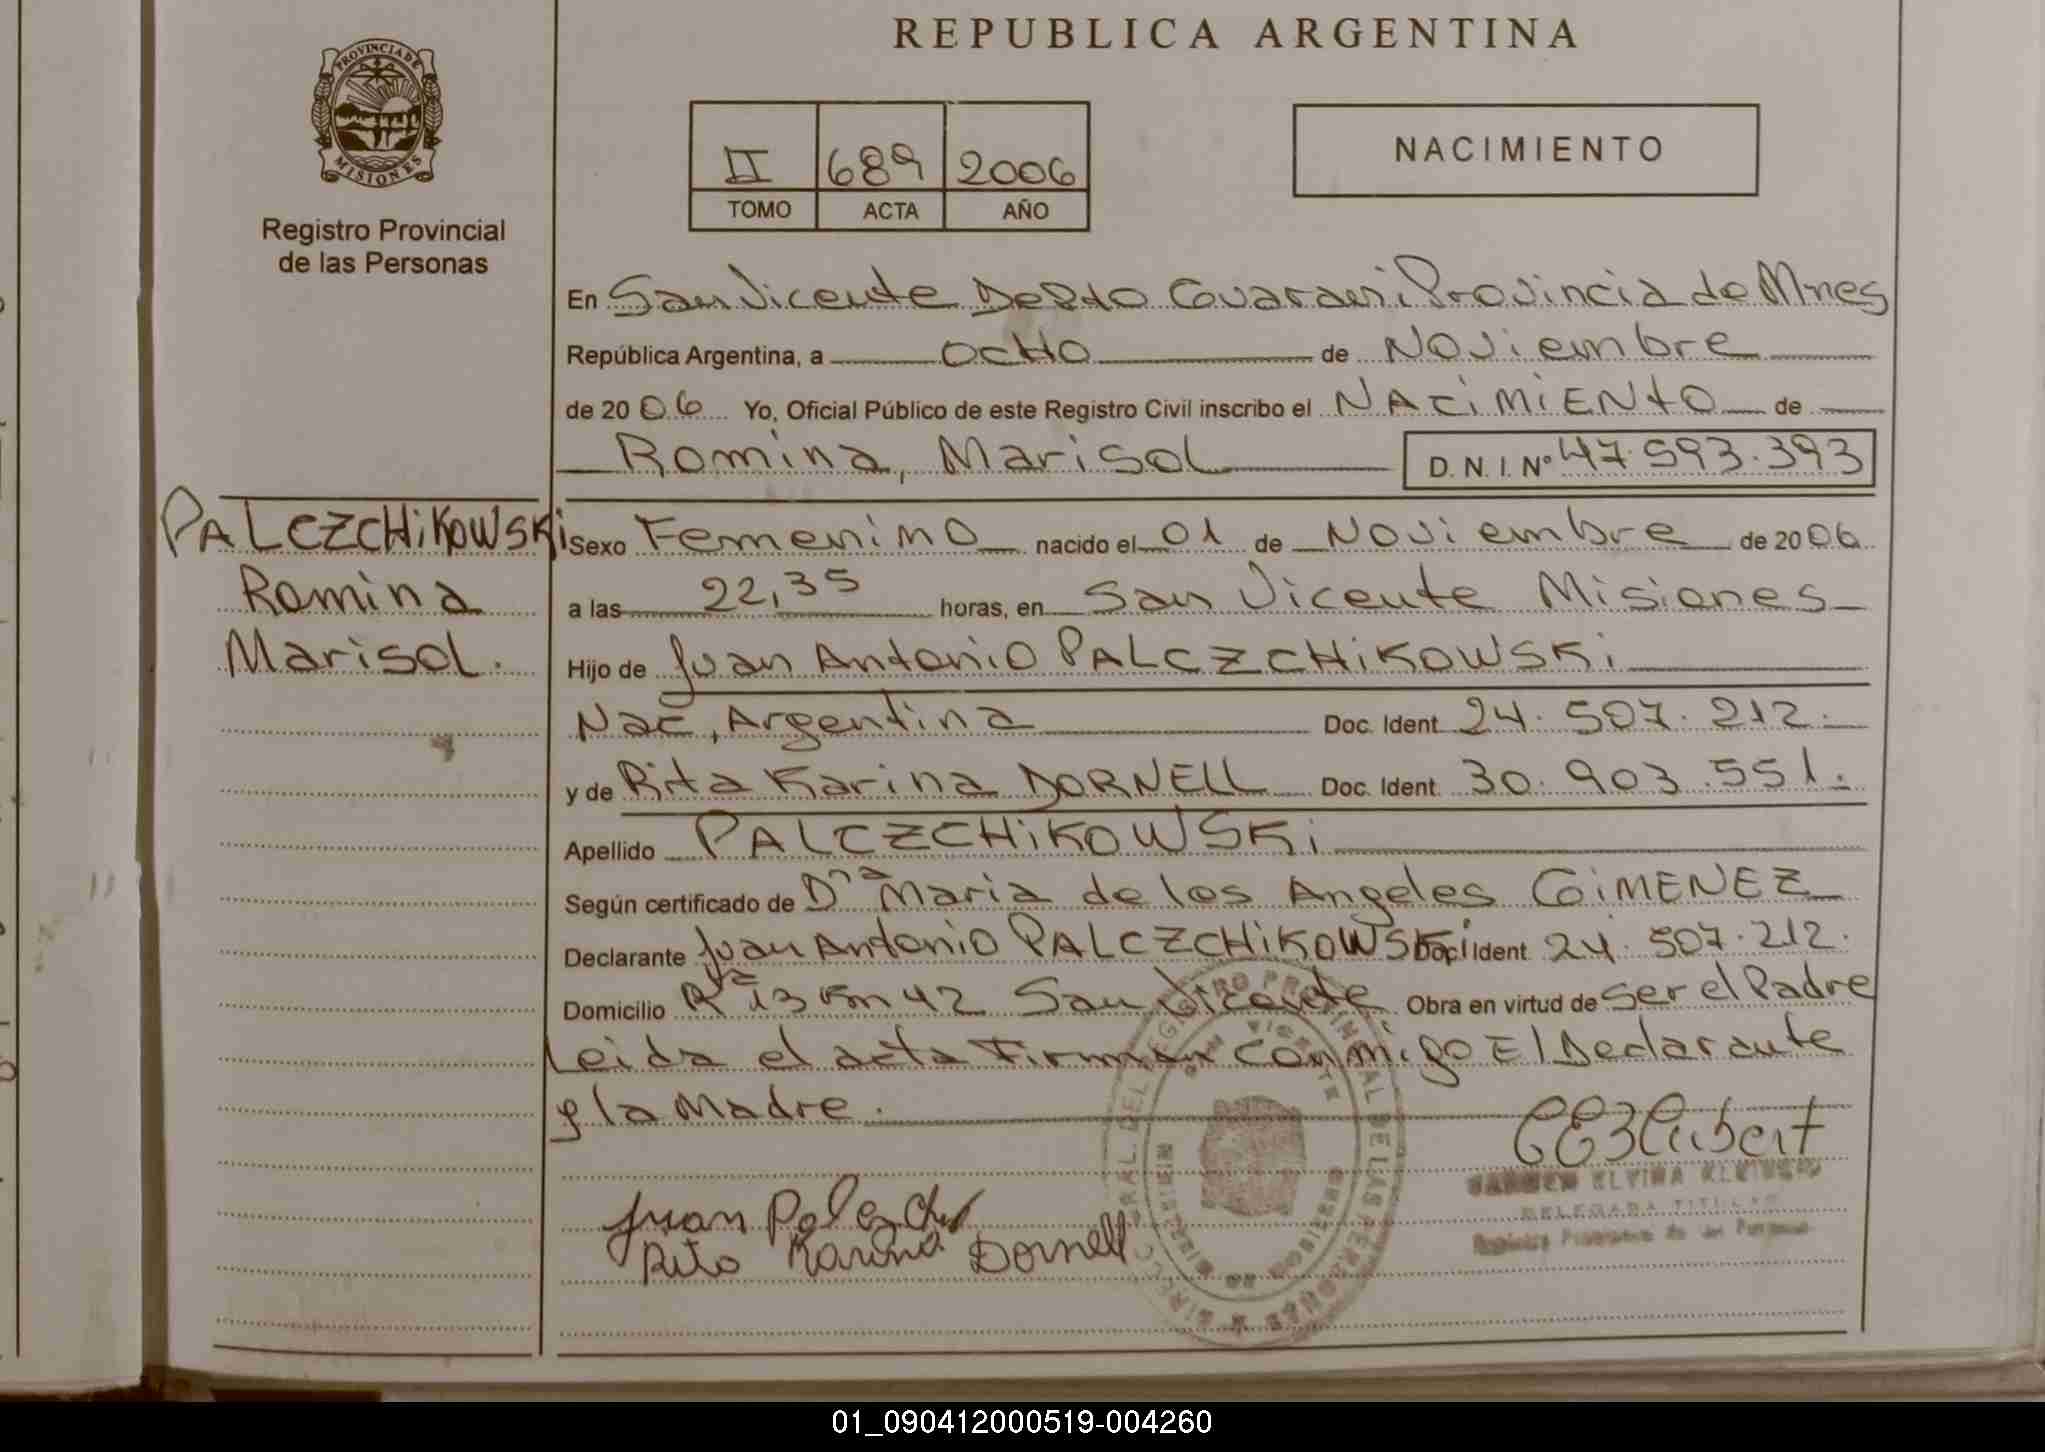 REPUBLICA ARGENTINA
PROVINCIA DE
MISIONES
Registro Provincial
de las Personas
II 689 2006
TOMO ACTA AÑO
NACIMIENTO
En San Vicente Depto Guarani Provincia de Mnes
República Argentina, a OCHO de Noviembre
de 2006 Yo, Oficial Público de este Registro Civil inscribo el NACIMIENTO de
Romina, Marisol D.N.I. Nº 47.593.393
PALCZCHiKOWSKi
Romina
Marisol.
Sexo Femenino nacido el 01 de Noviembre de 2006
a las 22,35 horas, en San Vicente Misiones
Hijo de Juan Antonio PALCZCHiKOWSKi
Nac, Argentina Doc. Ident 24.507.212.
y de Rita Karina DORNELL Doc. Ident 30.903.551.
Apellido PALCZCHiKOWSKi
Según certificado de Dña Maria de los Angeles GiMENEZ
Declarante Juan Antonio PALCZCHiKOWSKi Doc. Ident 24.507.212.
Domicilio Rta 13 Km 42 San Vicente Obra en virtud de ser el Padre
Leida el acta Firman conmigo El Declarante
y la Madre.
Juan Palczch
Rita Karina Dornell
ELVIRA
DELEGADA TITULAR
Registro Provincial de las Personas
SAN VICENTE
01_090412000519-004260